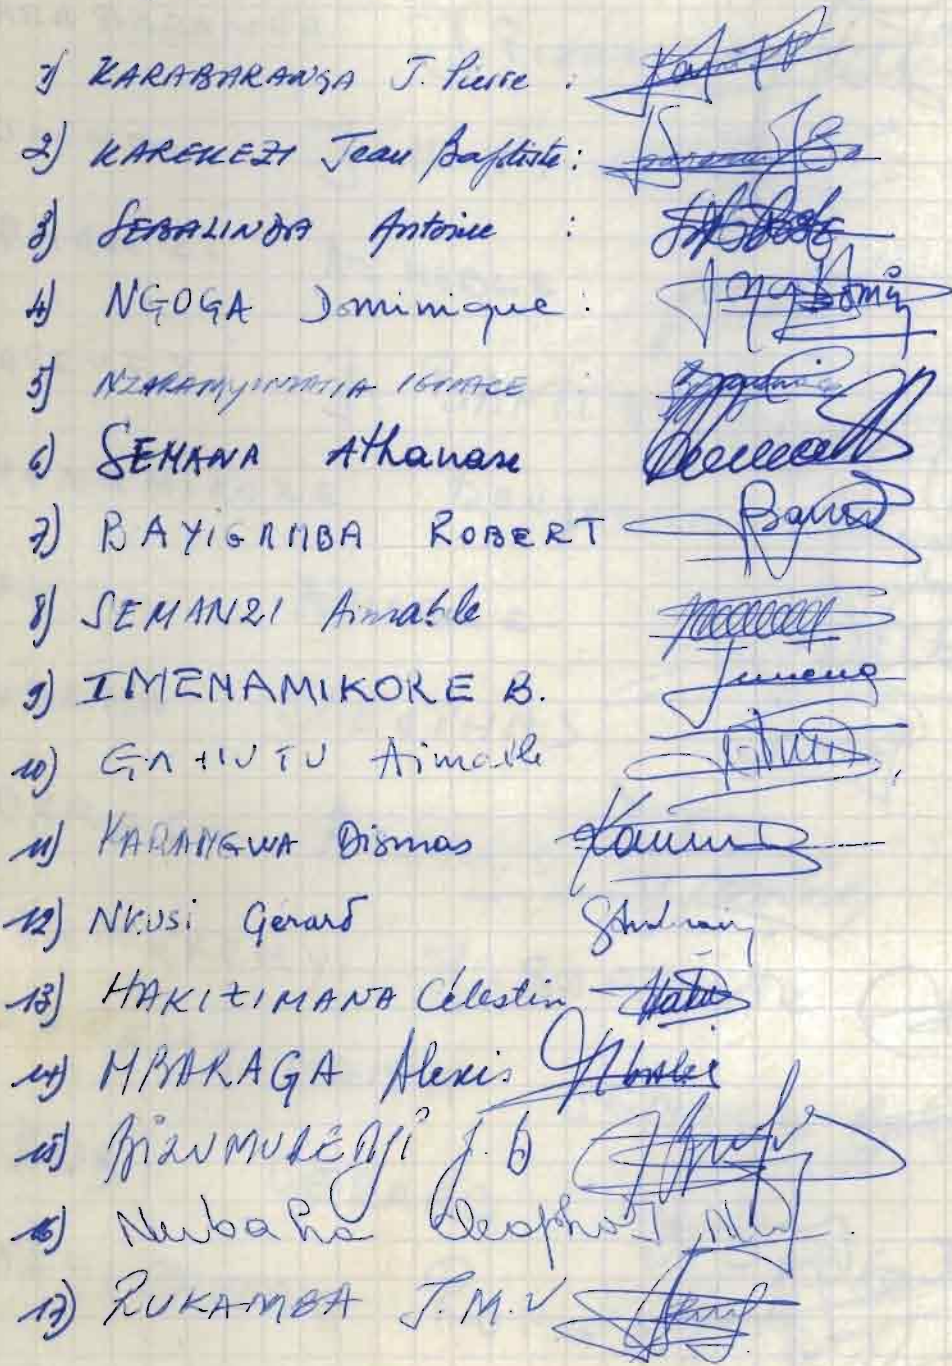 1) KARABARANGA J. Pierre :
2) KAREKEZI Jean Baptiste :
3) SEBALINDA Antoine :
4) NGOGA Dominique :
5) IGNACE
6) SEMANA Athanase
7) BAYIGAMBA ROBERT
8) SEMANZI Aimable
9) IMENAMIKORE B.
10) GAHUTU Aimable
11) KARANGWA Dismas
12) NKUSi Gérard
13) HAKIZIMANA Célestin
14) MBARAGA Alexis
15) J. B
16)
17) RUKAMBA J.M.V